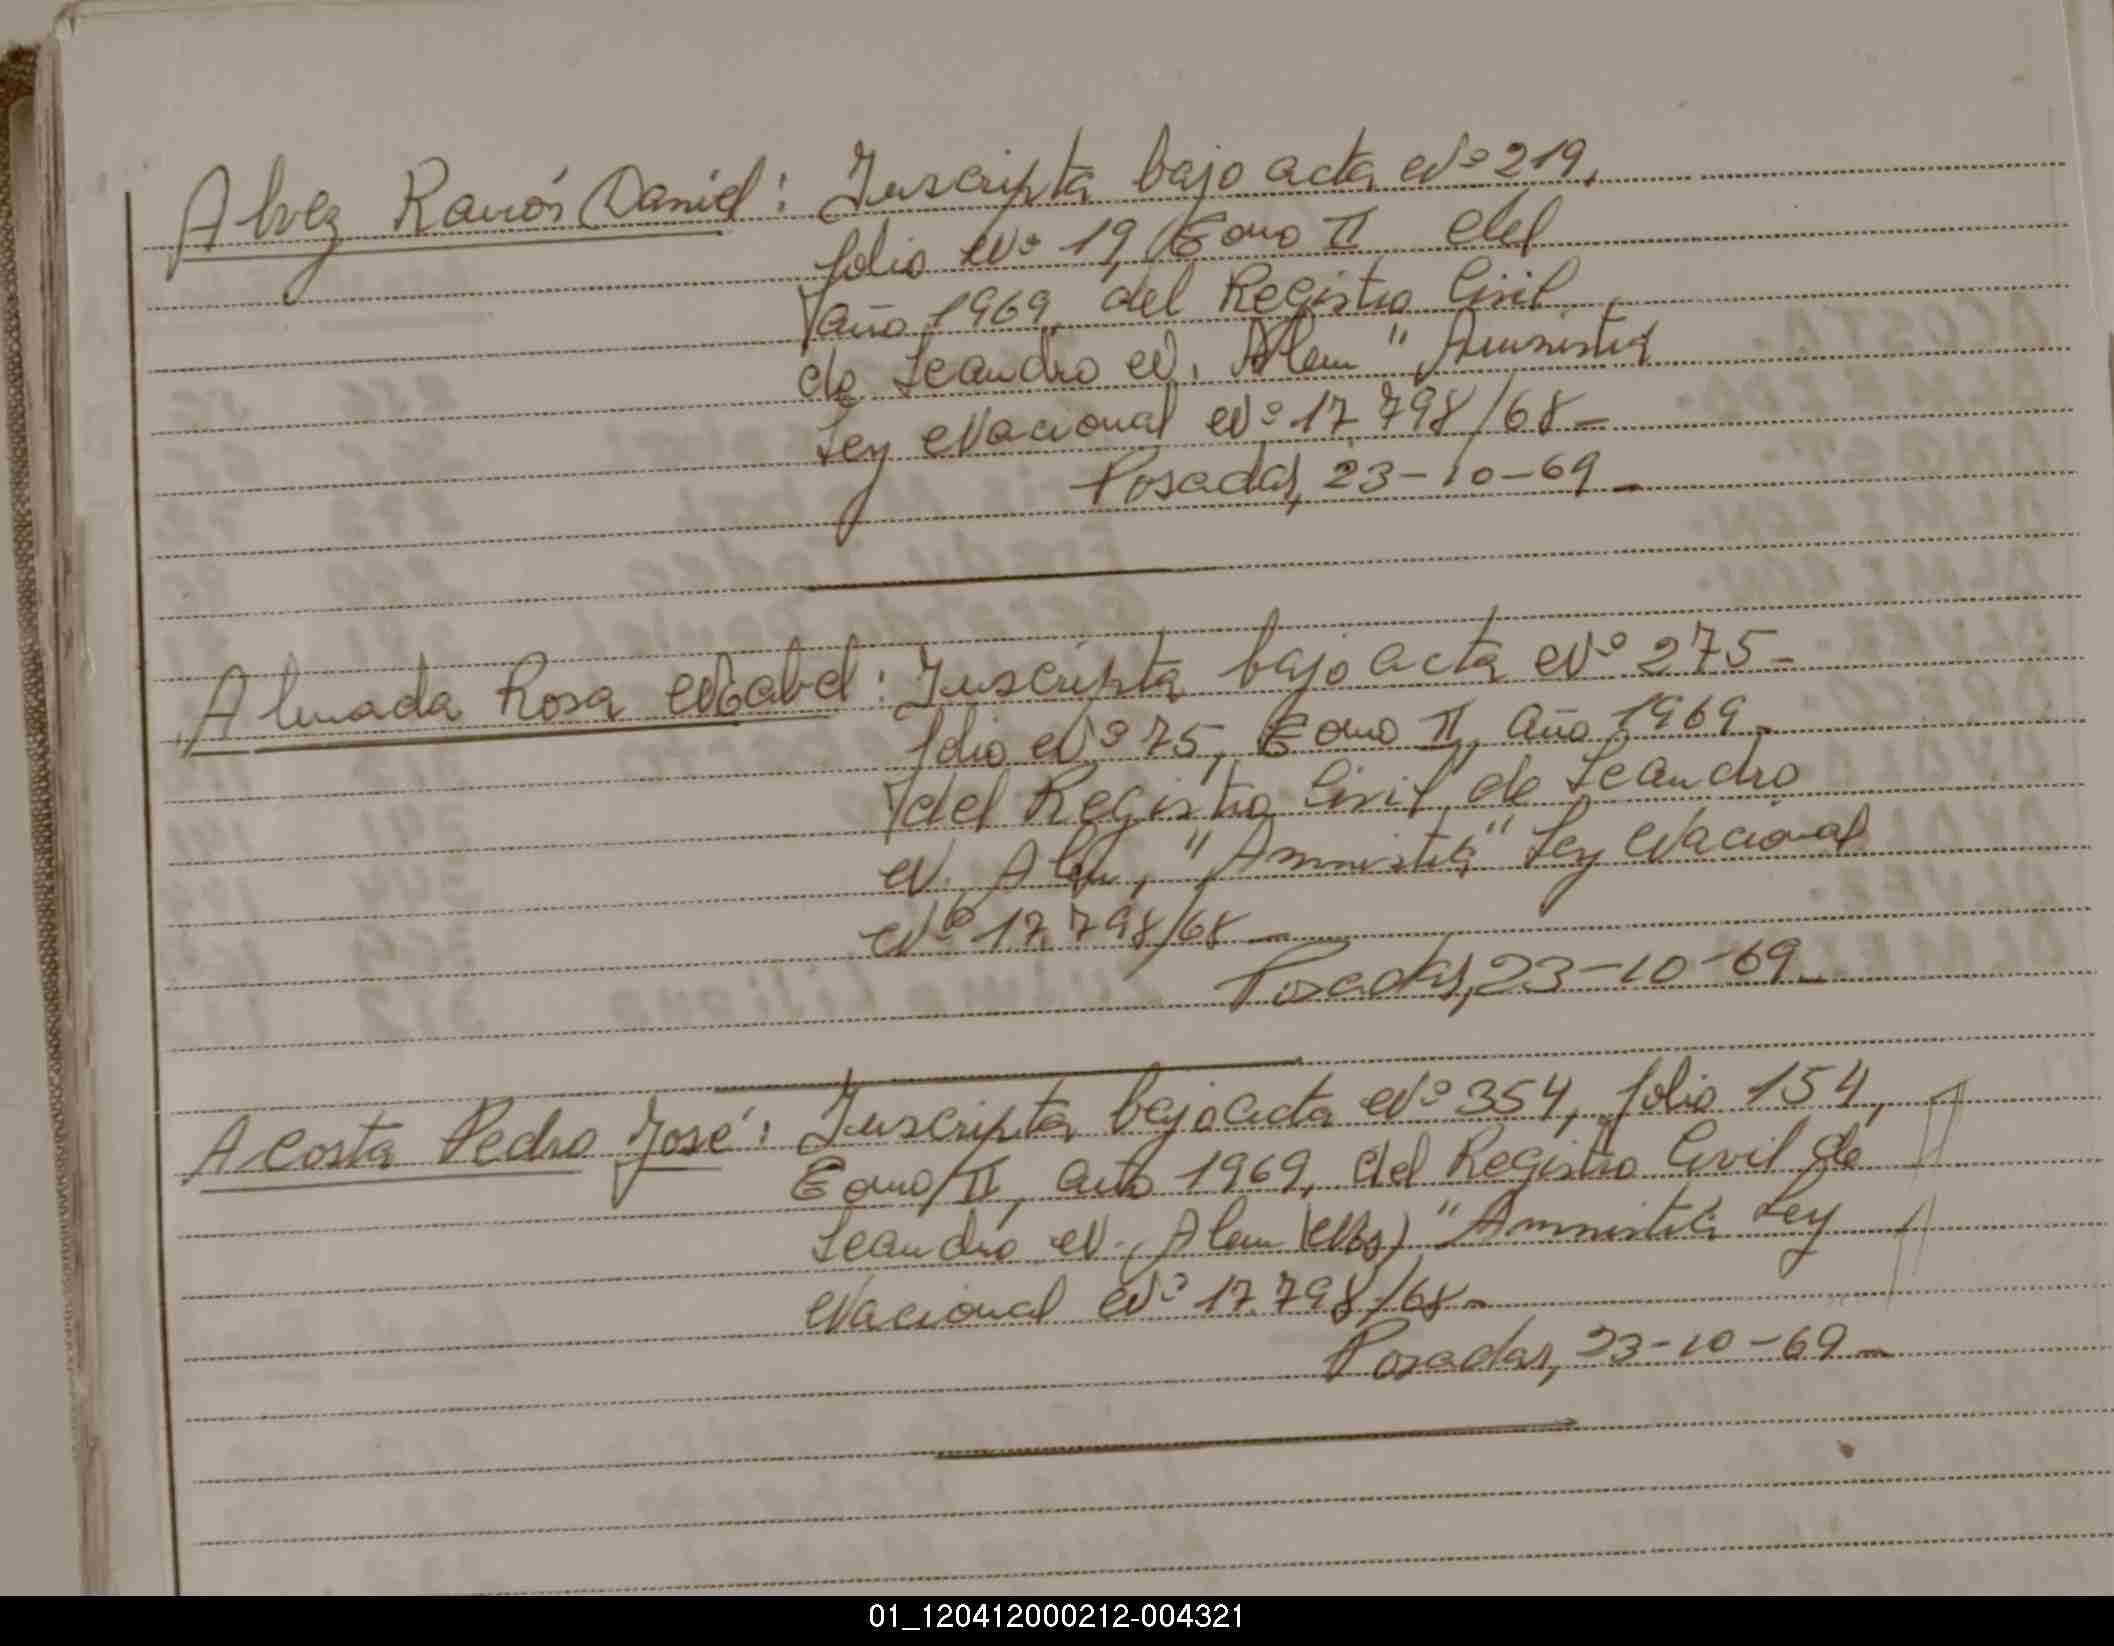 Alvez Ramón Daniel: Inscripta bajo acta Nº 219,
folio Nº 19, Tomo II del
año 1969, del Registro Civil
de Leandro N. Alem "Amnistia
Ley Nacional Nº 17.798/68-
Posadas, 23-10-69-
Almada Rosa Mabel: Inscripta bajo acta Nº 275-
folio Nº 75, Tomo II, año 1969-
del Registro Civil de Leandro
N. Alem, "Amnistia" Ley Nacional
Nº 17.798/68-
Posadas, 23-10-69-
Acosta Pedro José: Inscripta bajo acta Nº 354, folio 154,
Tomo II, año 1969, del Registro Civil de
Leandro N. Alem (Mns) "Amnistia Ley
Nacional Nº 17.798/68-
Posadas, 23-10-69-
01_120412000212-004321